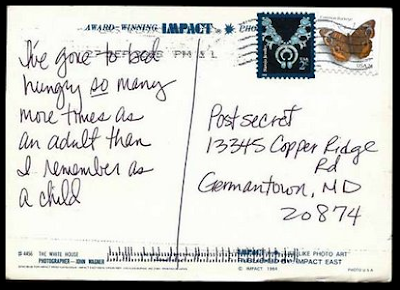 AWARD-WINNING IMPACT
PM 3 L
I've gone to bed
hungry so many
more times as
an adult than
I remember as
a child
Postsecret
13345 Copper Ridge
Rd
Germantown, MD
20874
THE WHITE HOUSE
PHOTOGRAPHER - JOHN WAGNER
IMPACT LIKE PHOTO ART
PUBLISHED BY IMPACT EAST
© IMPACT